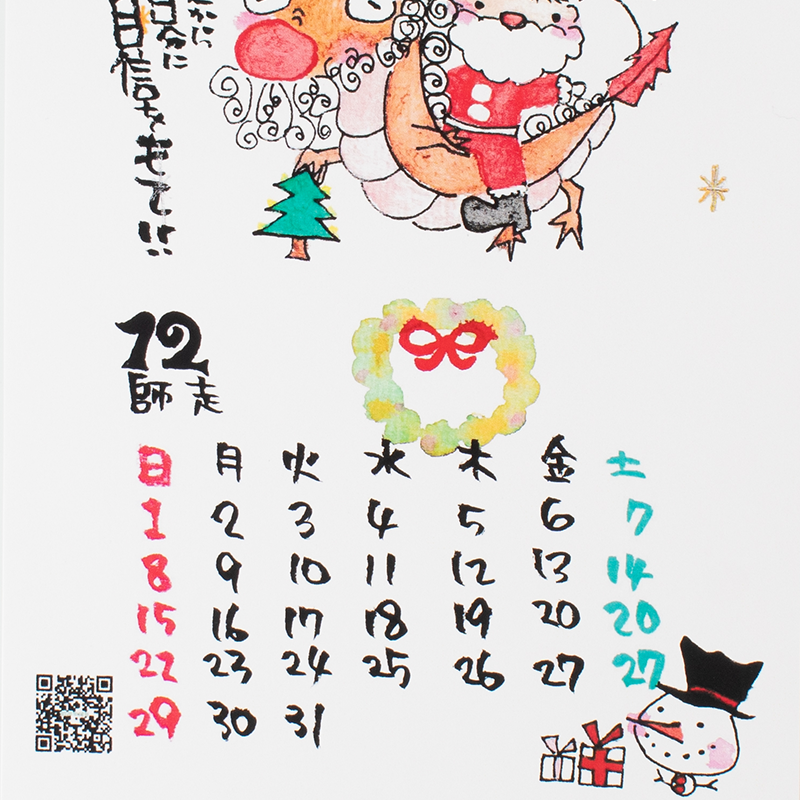 自分に
自信をもて!!
12
師走
日 月 火 水 木 金 土
1 2 3 4 5 6 7
8 9 10 11 12 13 14
15 16 17 18 19 20 20
22 23 24 25 26 27 27
29 30 31